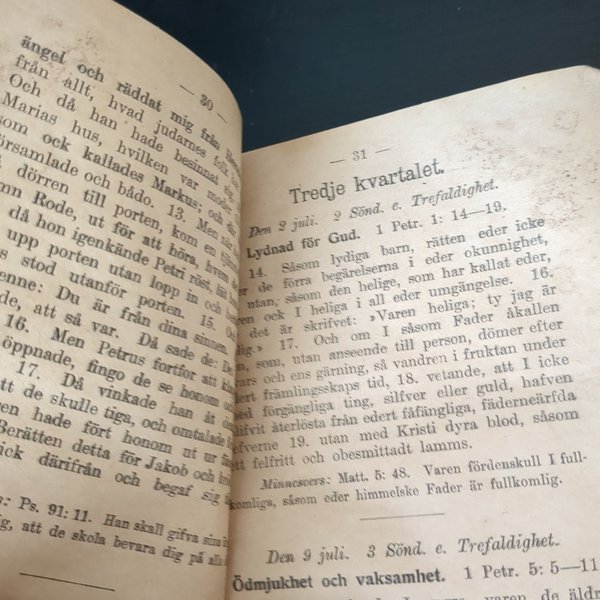 — 30 —
ängel och räddat mig från
från allt, hvad judarnes folk
Och då han hade besinnat sig
Marias hus, hvilken var moder
som ock kallades Markus; och där
församlade och bådo. 13. Men när
dörren till porten, kom en
namn Rode, ut för att höra, hvem
då hon igenkände Petri röst,
upp porten utan lopp in och
stod utanför porten. 15.
henne: Du är från dina sinnen.
de, att så var. Då sade de:
16. Men Petrus fortfor att
öppnade, fingo de se honom
17. Då vinkade han åt
att de skulle tiga, och omtalade
hade fört honom ut ur
Berätten detta för Jakob och
gick därifrån och begaf sig
Ps. 91: 11. Han skall gifva sina
dig, att de skola bevara dig på alla
— 31 —
Tredje kvartalet.
Den 2 juli. 2 Sönd. e. Trefaldighet.
Lydnad för Gud. 1 Petr. 1: 14—19.
14. Såsom lydiga barn, rätten eder icke
de förra begärelserna i eder okunnighet,
utan, såsom den helige, som har kallat eder,
ock I heliga i all eder umgängelse. 16.
det är skrifvet: »Varen heliga; ty jag är
17. Och om I såsom Fader åkallen
som, utan anseende till person, dömer efter
och ens gärning, så vandren i fruktan under
edert främlingsskaps tid, 18. vetande, att I icke
med förgängliga ting, silfver eller guld, hafven
blifvit återlösta från edert fåfängliga, fäderneärfda
lefverne 19. utan med Kristi dyra blod, såsom
ett felfritt och obesmittadt lamms.
Minnesvers: Matt. 5: 48. Varen fördenskull I full-
komliga, såsom eder himmelske Fader är fullkomlig.
Den 9 juli. 3 Sönd. e. Trefaldighet.
Ödmjukhet och vaksamhet. 1 Petr. 5: 5—11
varen de äldre